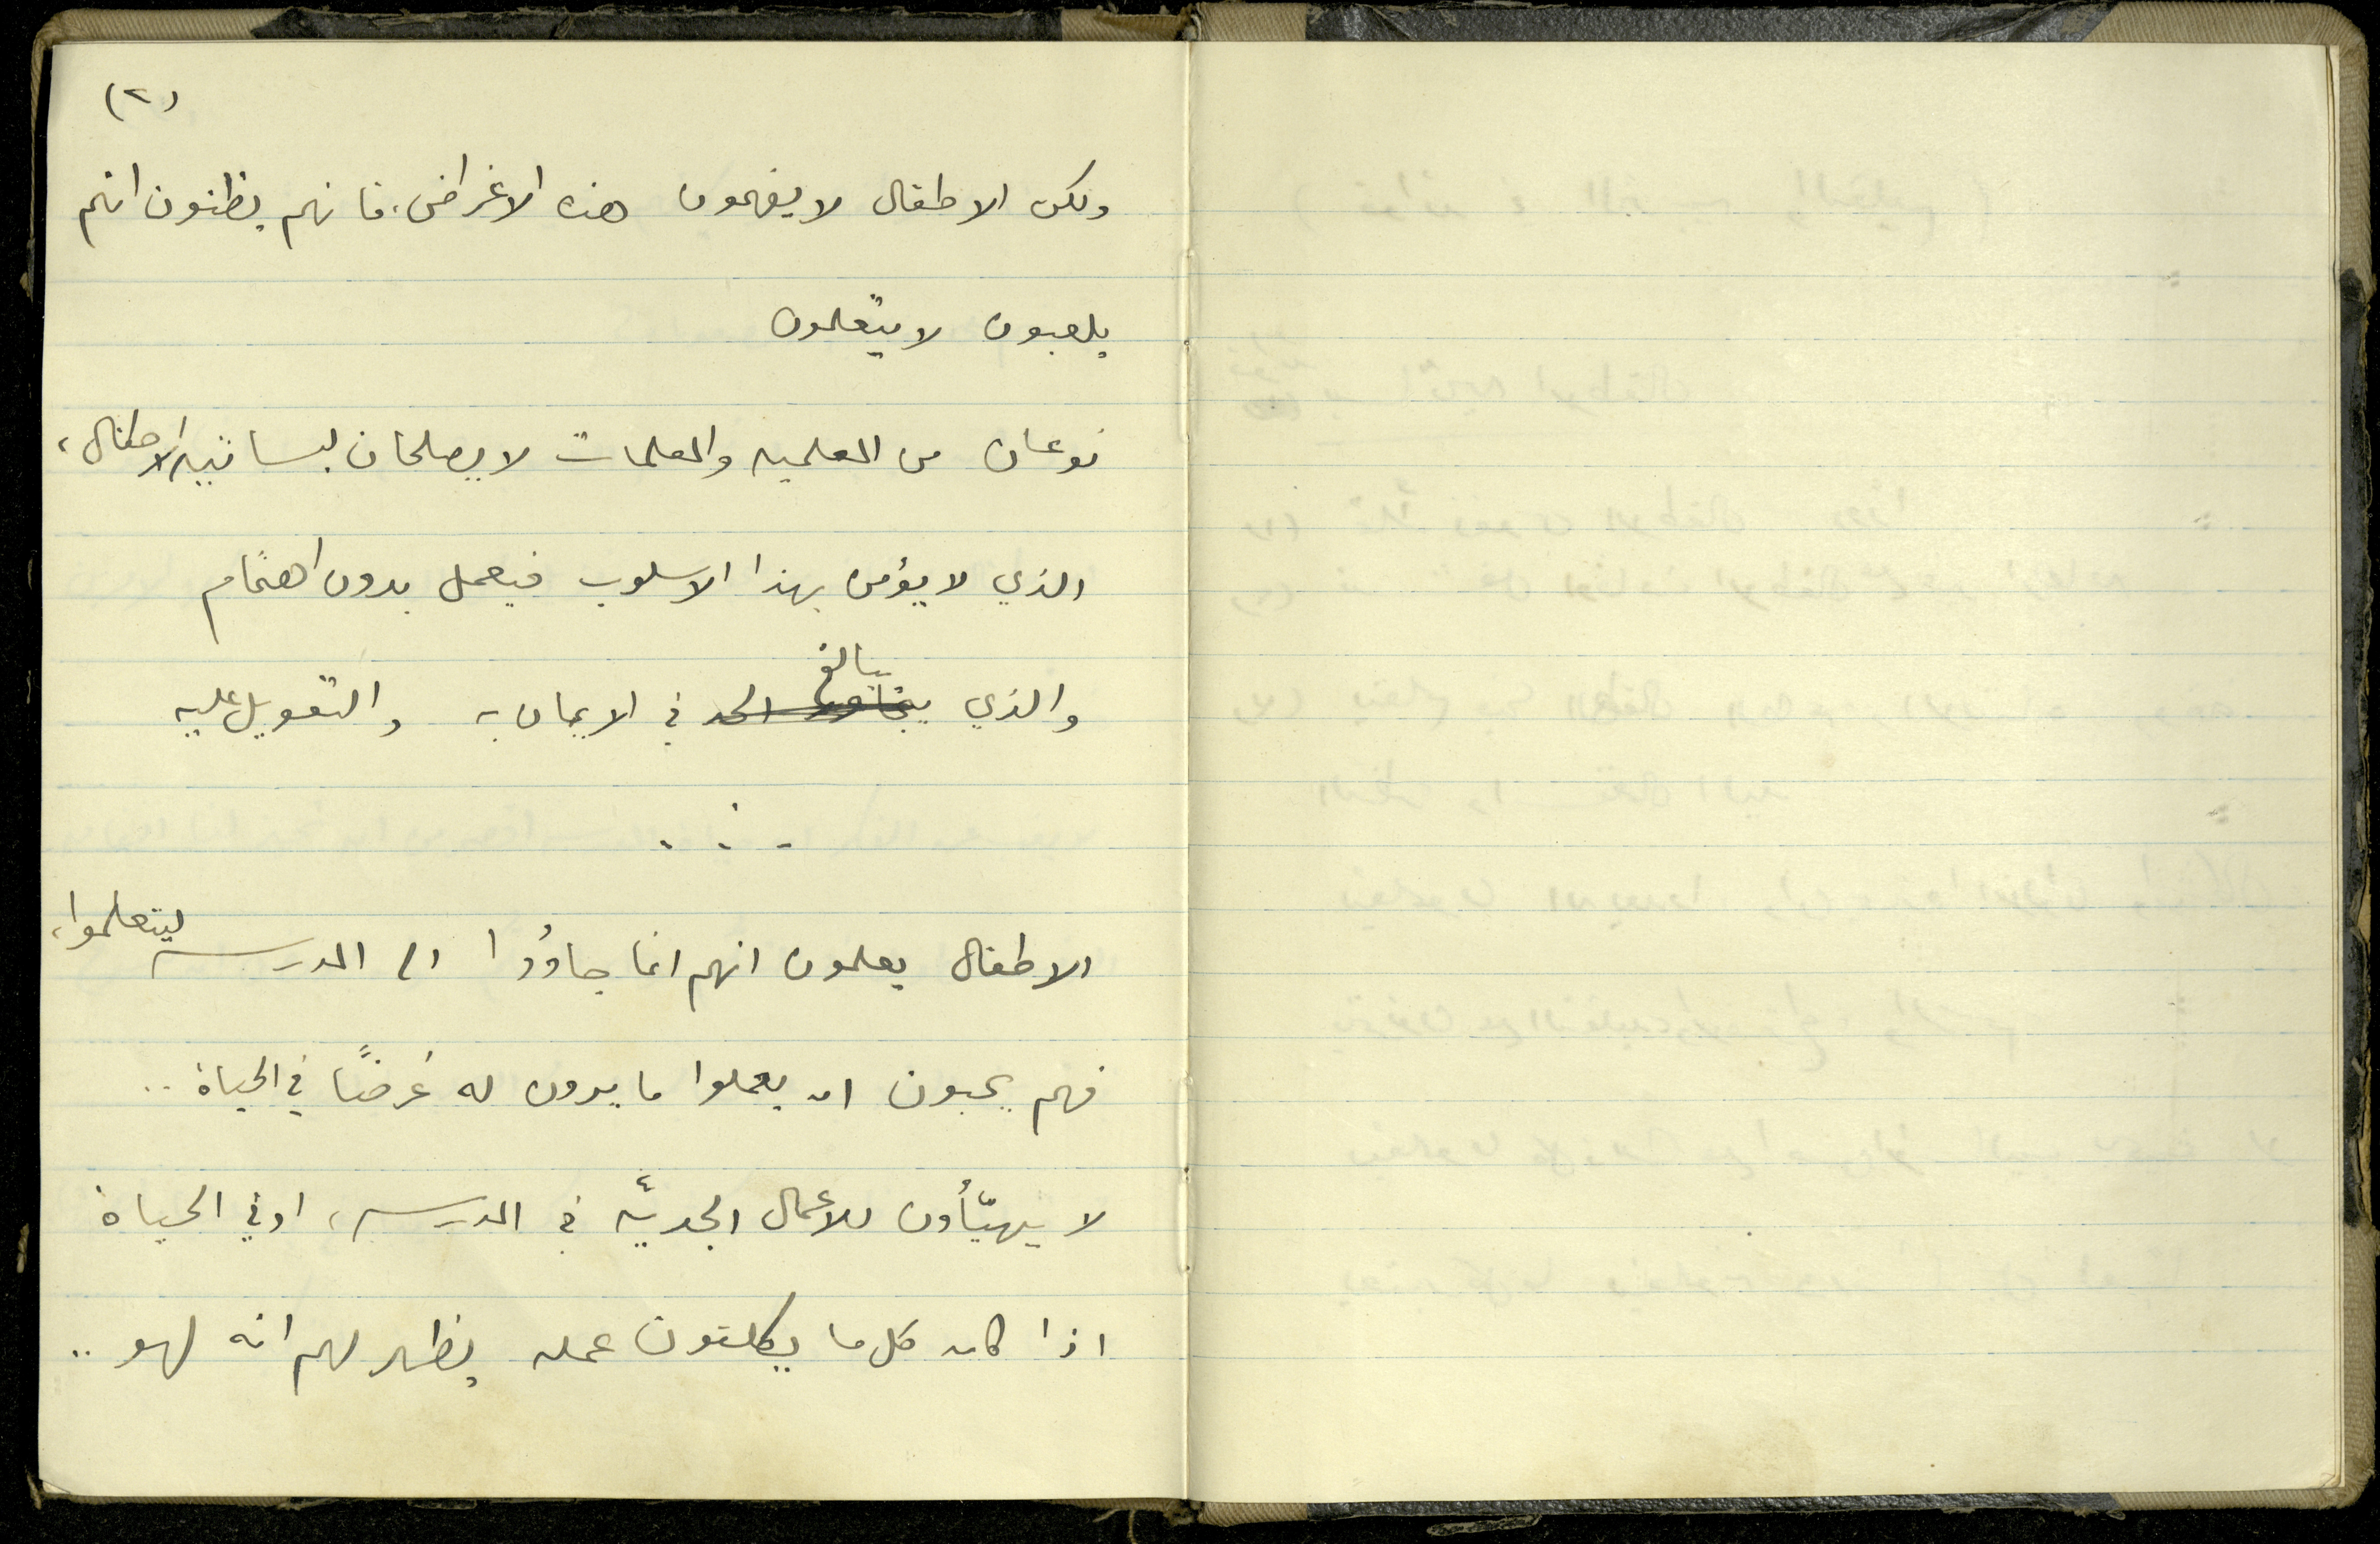 (٢)
ولكن الاطفال لا يفهمون هذه الاغراض، فانهم يظنون انهم
يلعبون لا يتعلمون
نوعان من المعلمين والمعلمات لا يصلحان لبساتين الاطفال،
الذي لا يؤمن بهذا الاسلوب فيعمل بدون اهتمام
والذي يبالغ في الايمان به والتعويل عليه
الاطفال يعلمون انهم انما جاؤوا الى المدرسه ليتعلموا،
فهم يحبون ان يعملوا ما يرون له غرضًا في الحياة ..
لا يهيّأون للاعمال الجديّه في المدرسه، او في الحياة
اذا كان كل ما يكلفون عمله يظهر لهم انه لهو ..